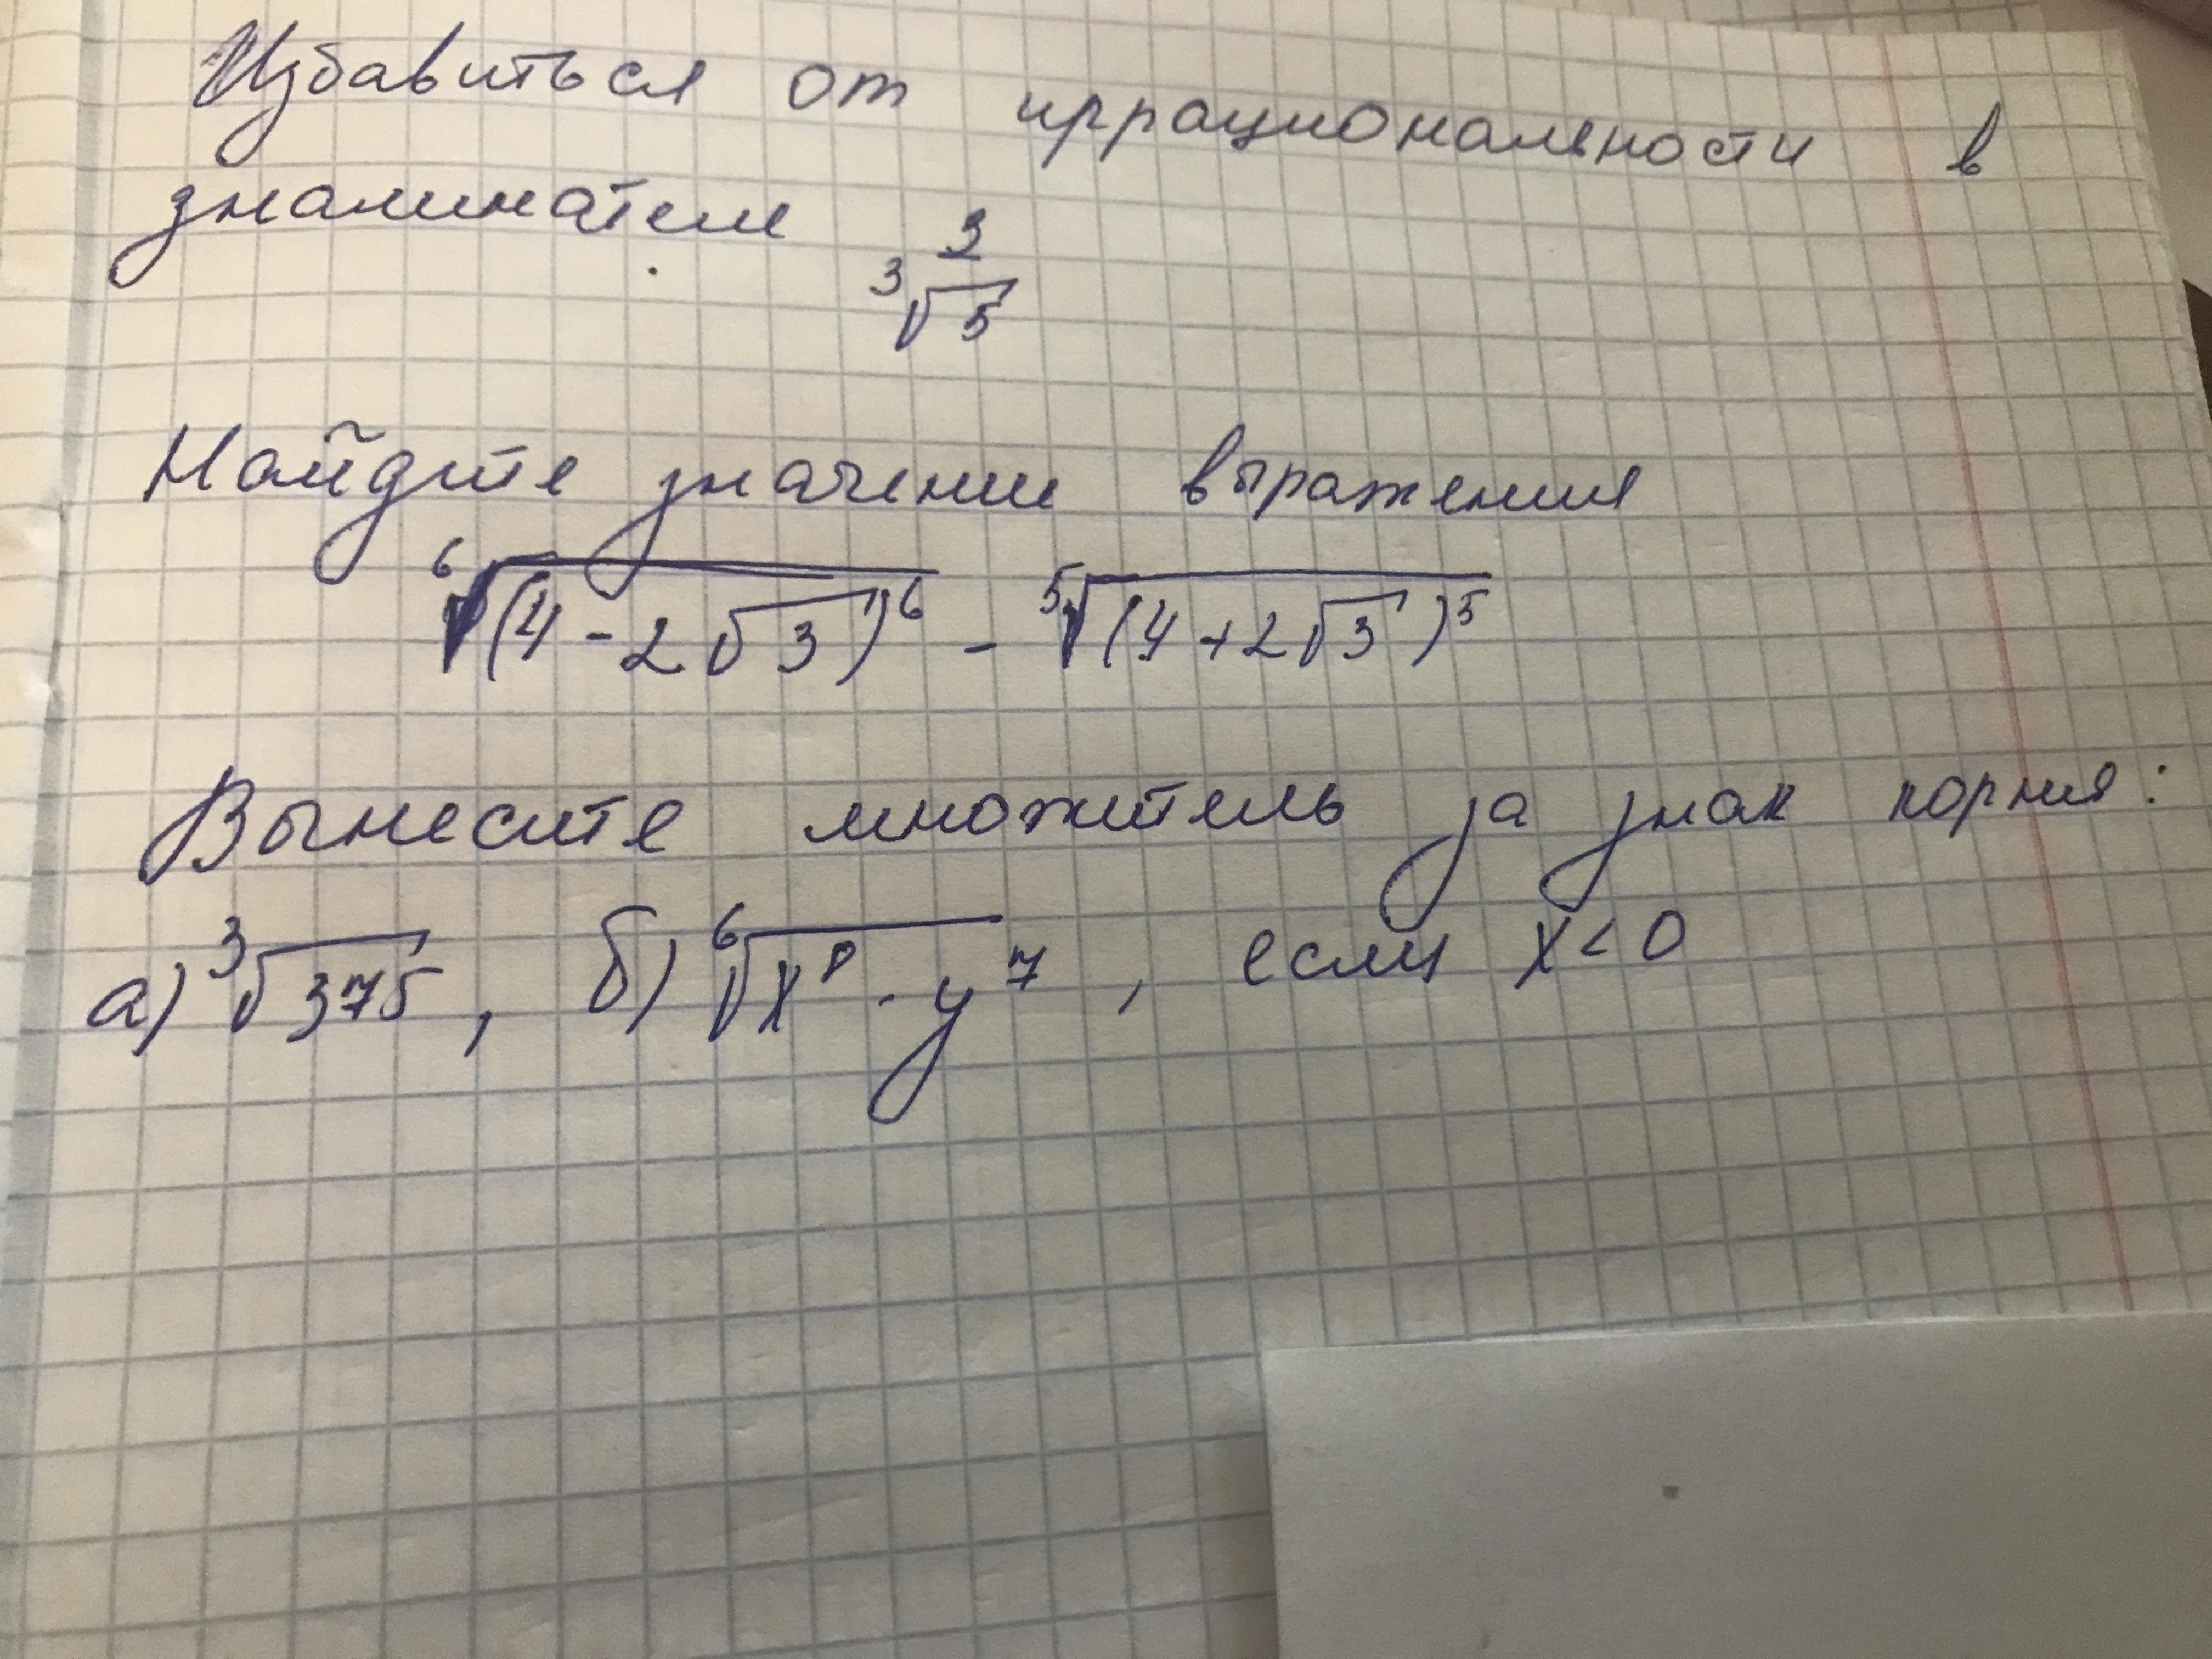 Избавиться от иррациональности в
знаменателе 3/∛5
Найдите значение выражения
⁶√(4 - 2√3)⁶ - ⁵√(4 + 2√3)⁵
Вынесите множитель за знак корня:
а) ³√375, б) ⁶√x⁸ · y⁷, если x < 0